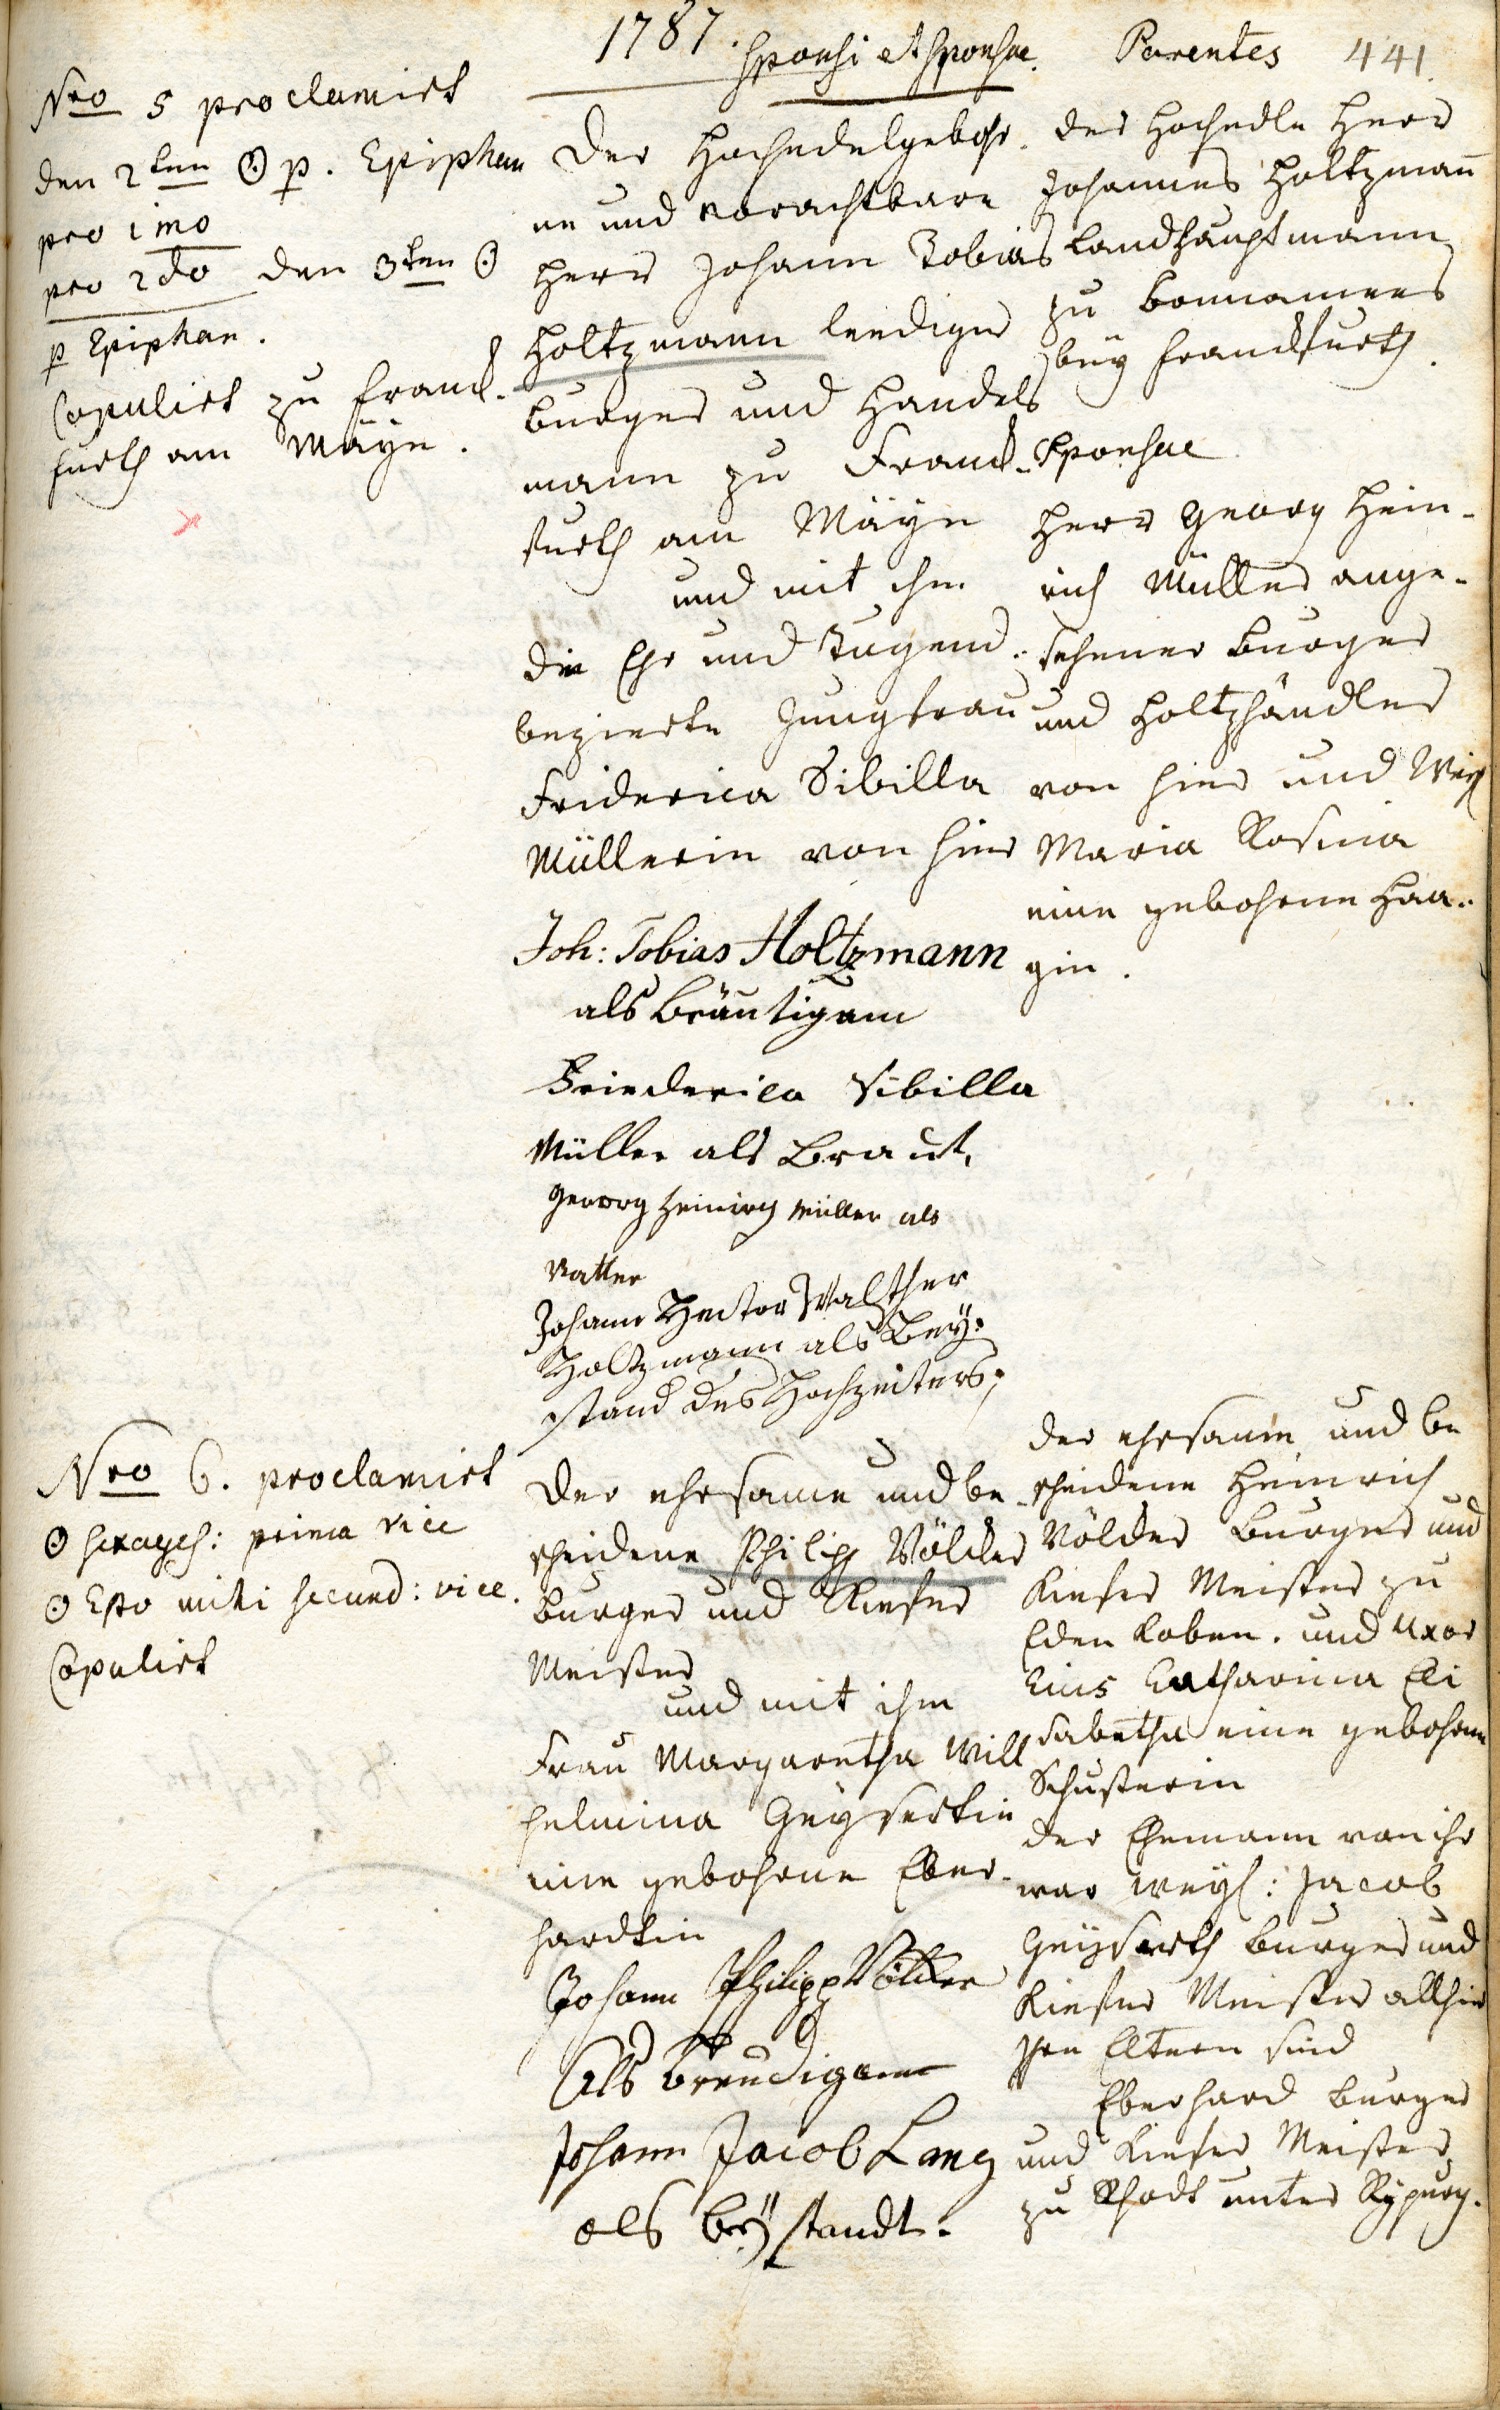 1787. Sponsi et Sponsae. Parentes 441.
Nro 5 proclamirt
den 2ten ☉ p. Epiphan
pro imo
pro 2do den 3ten ☉
p Epiphan.
Copulirt zu Franck-
furth am Mäyn.
Der HochEdelgebohr-
ne und vorachtbare
Herr Johann Tobias
Holtzmann leediger
Burger und Handels
mann zu Franck-
furth am Mäyn
und mit ihm
die Ehr und Tugend-
bezierte Jungfrau
Friderica Sibilla
Müllerin von hier
Joh: Tobias Holtzmann
als Bräutigam
Friederica Sibilla
Müller als Braut,
Georg Heinrich Müller als
Vatter
Johann Hector Walther
Holtzmann als Bey-
stand des Hochzeiters;
der HochEdle Herr
Johannes Holtzmann̄
Landhauptmann
zu Bonnamees
beÿ Franckfurth.
Sponsae
Herr Georg Hein-
rich Müller ange-
sehener Burger
und Holtzhändler
von hier und Weyl
Maria Rosina
eine gebohrene Haa-
gin.
Nro 6. proclamirt
☉ Sexages: prima vice
☉ Esto mihi secund: vice.
Copulirt
Der ehrsame und be-
scheidene Philipp Völcker
Burger und Kiefer
Meister
und mit ihm
Frau Margaretha Will
helmina Geÿsertin
eine gebohrne Eber-
hardtin
Johann Philipp Völcker
Als Breudigam
Johann Jacob Lang
als beÿstandt.
der ehrsame und be
scheidene Heinrich
Völcker Burger und
Kiefer Meister zu
Edenkoben. und Uxor
Eius Catharina Eli
sabetha eine gebohrne
Schusterin
der Ehemann von ihr
war weyl: Jacob
Geÿserth Burger und
Kiefer Meister allhier
Ihre Eltern sind
Eberhard Burger
und Kiefer Meister
zu Rhodt unter Rypurg.